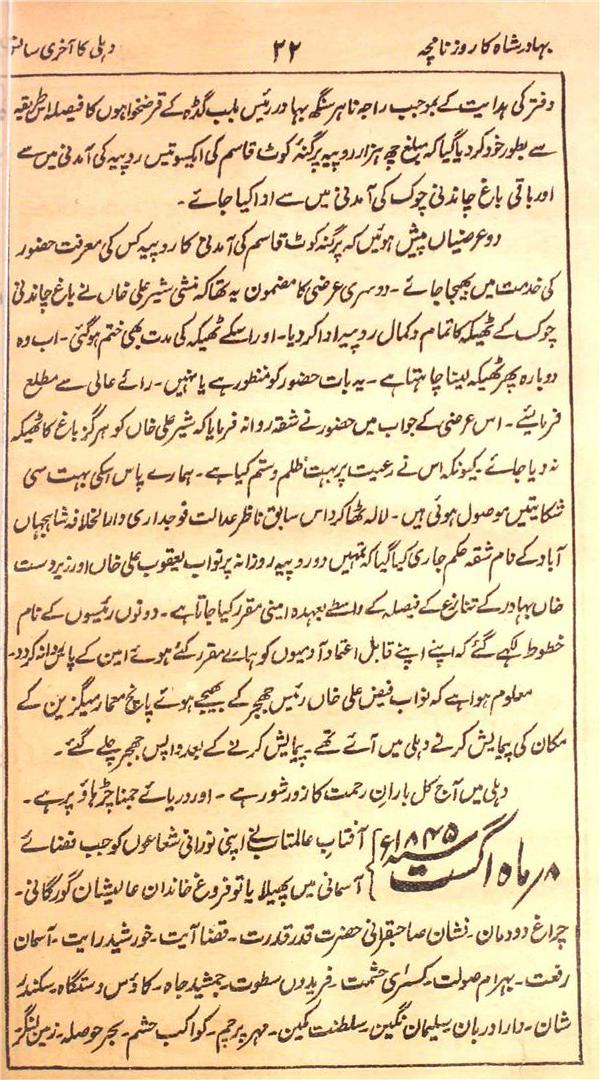 بہادر شاہ کا روزنامچہ ۲۲ دہلی کا آخری سانس
دفتر کی ہدایت کے بموجب راجہ ناہر سنگھ بہادر رئیس بلب گڈہ کے قرضخواہوں کا فیصلہ اس طریقہ
سے بطور خود کر دیا گیا کہ مبلغ چھ ہزار روپیہ پرگنہ کوٹ قاسم کی ایکسو تیس روپیہ کی آمدنی میں سے
اور باقی باغ چاندنی چوک کی آمدنی میں سے ادا کیا جائے۔
دو عرضیاں پیش ہوئیں کہ پرگنہ کوٹ قاسم کی آمدنی کا روپیہ کس کی معرفت حضور
کی خدمت میں بھیجا جائے۔ دوسری عرضی کا مضمون یہ تھا کہ منشی شیر علی خاں نے باغ چاندنی
چوک کے ٹھیکہ کا تمام و کمال روپیہ ادا کر دیا۔ اور اسکے ٹھیکہ کی مدت بھی ختم ہو گئی۔ اب وہ
دوبارہ پھر ٹھیکہ لینا چاہتا ہے۔ یہ بات حضور کو منظور ہے یا نہیں۔ رائے عالی سے مطلع
فرمائیے۔ اس عرضی کے جواب میں حضور نے شقہ روانہ فرمایا کہ شیر علی خاں کو ہرگز باغ کا ٹھیکہ
نہ دیا جائے۔ کیونکہ اس نے رعیت پر بہت ظلم و ستم کیا ہے۔ ہمارے پاس اسکی بہت سی
شکایتیں موصول ہوئی ہیں۔ لالہ ٹھاکرداس سابق ناظر عدالت فوجداری دارالخلافہ شاہجہاں
آباد کے نام شقہ حکم جاری کیا گیا کہ تمہیں دو روپیہ روزانہ پر نواب یعقوب علی خاں اور زبردست
خاں بہادر کے تنازع کے فیصلہ کے واسطے بعہدہ امینی مقرر کیا جاتا ہے۔ دونوں رئیسوں کے نام
خطوط لکھے گئے کہ اپنے اپنے قابل اعتماد آدمیوں کو ہمارے مقرر کئے ہوئے امین کے پاس روانہ کر دو۔
معلوم ہوا ہے کہ نواب فیض علی خاں رئیس جھجر کے بھیجے ہوئے پانچ معمار میگزین کے
مکان کی پیمایش کرنے دہلی میں آئے تھے۔ پیمایش کرنے کے بعد واپس جھجر چلے گئے۔
دہلی میں آج کل باران رحمت کا زور شور ہے۔ اور دریائے جمنا چڑھاؤ پر ہے۔
۸؍ ماہ اگست ۱۸۴۵ء
آفتاب عالمتاب نے اپنی نورانی شعاعوں کو جب فضائے
آسمانی میں پھیلایا تو فروغ خاندان عالیشان گورگانی۔
چراغ دودمان۔ نشان صاحبقرانی حضرت قدر قدرت۔ قضا آیت۔ خورشید رایت۔ آسمان
رفعت۔ بہرام صولت۔ کسرٰی حشمت۔ فریدوں سطوت۔ جمشید جاہ۔ کاؤس دستگاہ۔ سکندر
شان۔ دارا دربان۔ سلیمان نگین۔ سلطنت مکین۔ مہر پرچم۔ کواکب حشم۔ بحر حوصلہ۔ زمین لنگر